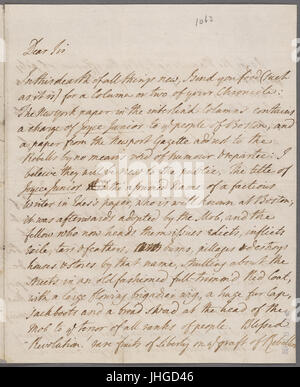 1062
Dear Sir
In this dearth of all things new, I send you food (such
as it is) for a column or two of your Chronicle:
The New york paper in the interlined Columns contains
a charge of Joyce Junior to ye people of Boston, and
a paper from the Newport Gazette address'd to the
Rebells by no means void of humour & repartee: I
beleive they will be new to the public. The title of
Joyce Junior the assumed Name of a factious
writer in Edes's paper, who is well known at Boston,
it was afterwards adopted by the Mob, and the
fellow who now heads them issues edicts, inflicts
exile, tars & feathers, ruins, pillages & destroys
houses & stores by that name, strutting about the
streets in an old fashioned full trimm'd Red Coat,
with a large flowing brigadier wig, a huge fur Cap,
Jackboots and a broad sword at the head of the
Mob to ye terror of all ranks of people. Blessed
Revolution. rare fruits of Liberty on ye graft of Rebellion
alamy
Image ID: JHGD46
www.alamy.com